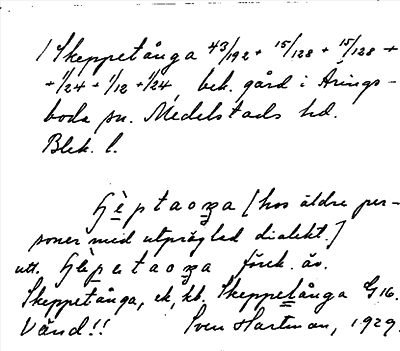 1 Skeppetånga 43/192 + 15/128 + 15/128 +
+ 1/24 + 1/12 + 1/24, bek. gård i Årings-
boda sn. Medelstads hd.
Blek. l.
[hos äldre per-
soner med utpräglad dialekt.]
utt. förek. äv.
Skeppetånga, ek, kb. Skeppetånga G16.
Vänd!! Sven Hartman, 1929.